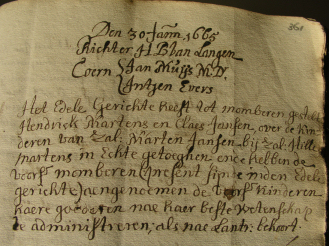 361
Den 30 Janu. 1665
Richter H B Van Langen
Coern Jan Muijs M.D.
Cantzen Evers
Het Edele Gerichte heeft tot momberen gestelt
Hendrick Martens en Claes Jansen, over de Kin
deren van Zal. Marten Jansen bij Zal. Hille
martens in Echte getoegen, ende hebben de
voors. momberen (present sijnde in den Edelen
gerichte) aengenoemen de voors. Kinderen
haere goederen nae haer beste wetenschap
te administreren, als nae Lantr. behort